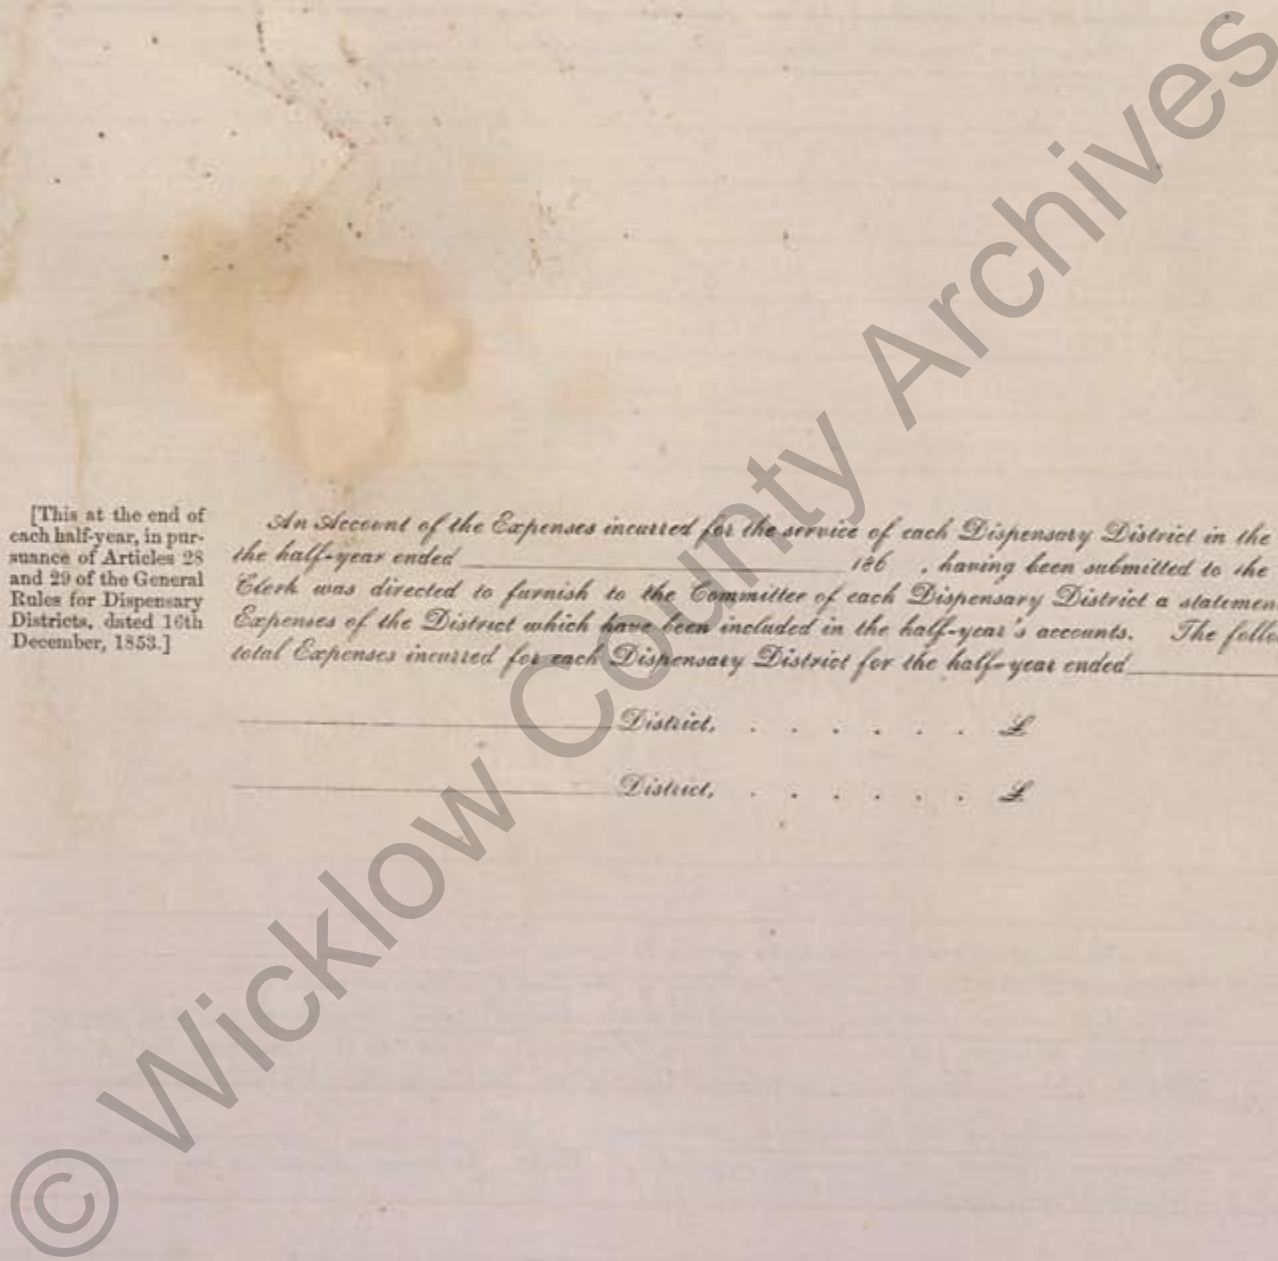 [This at the end of
each half-year, in pur-
suance of Articles 28
and 29 of the General
Rules for Dispensary
Districts, dated 16th
December, 1853.]
An Account of the Expenses incurred for the service of each Dispensary District in the
the half-year ended 186 , having been submitted to the
Clerk was directed to furnish to the Committee of each Dispensary District a statemen
Expenses of the District which have been included in the half-year's accounts. The follo
total Expenses incurred for each Dispensary District for the half-year ended
District, . . . . . . £
District, . . . . . . £
© Wicklow County Archives